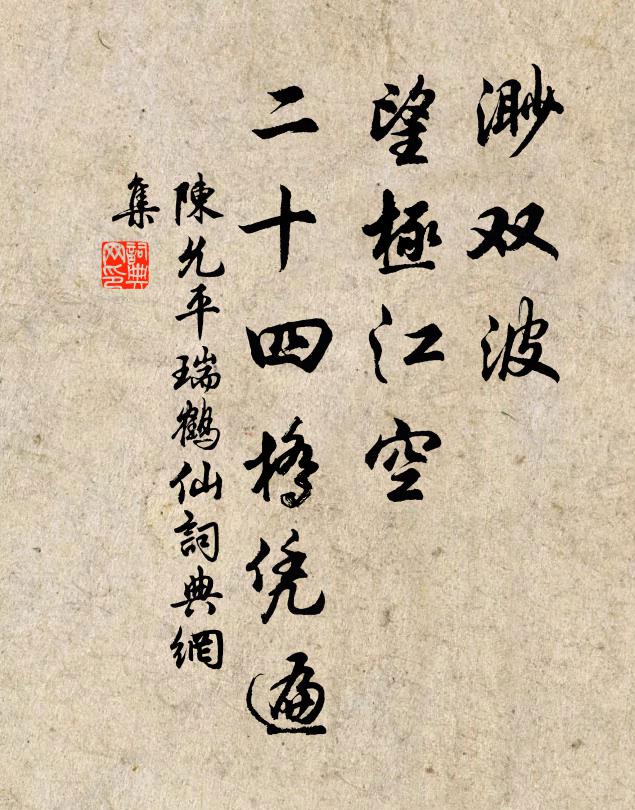 渺双波
望極江空
二十四橋凭遍
陳允平瑞鶴仙詞典網
集
詞典
网印